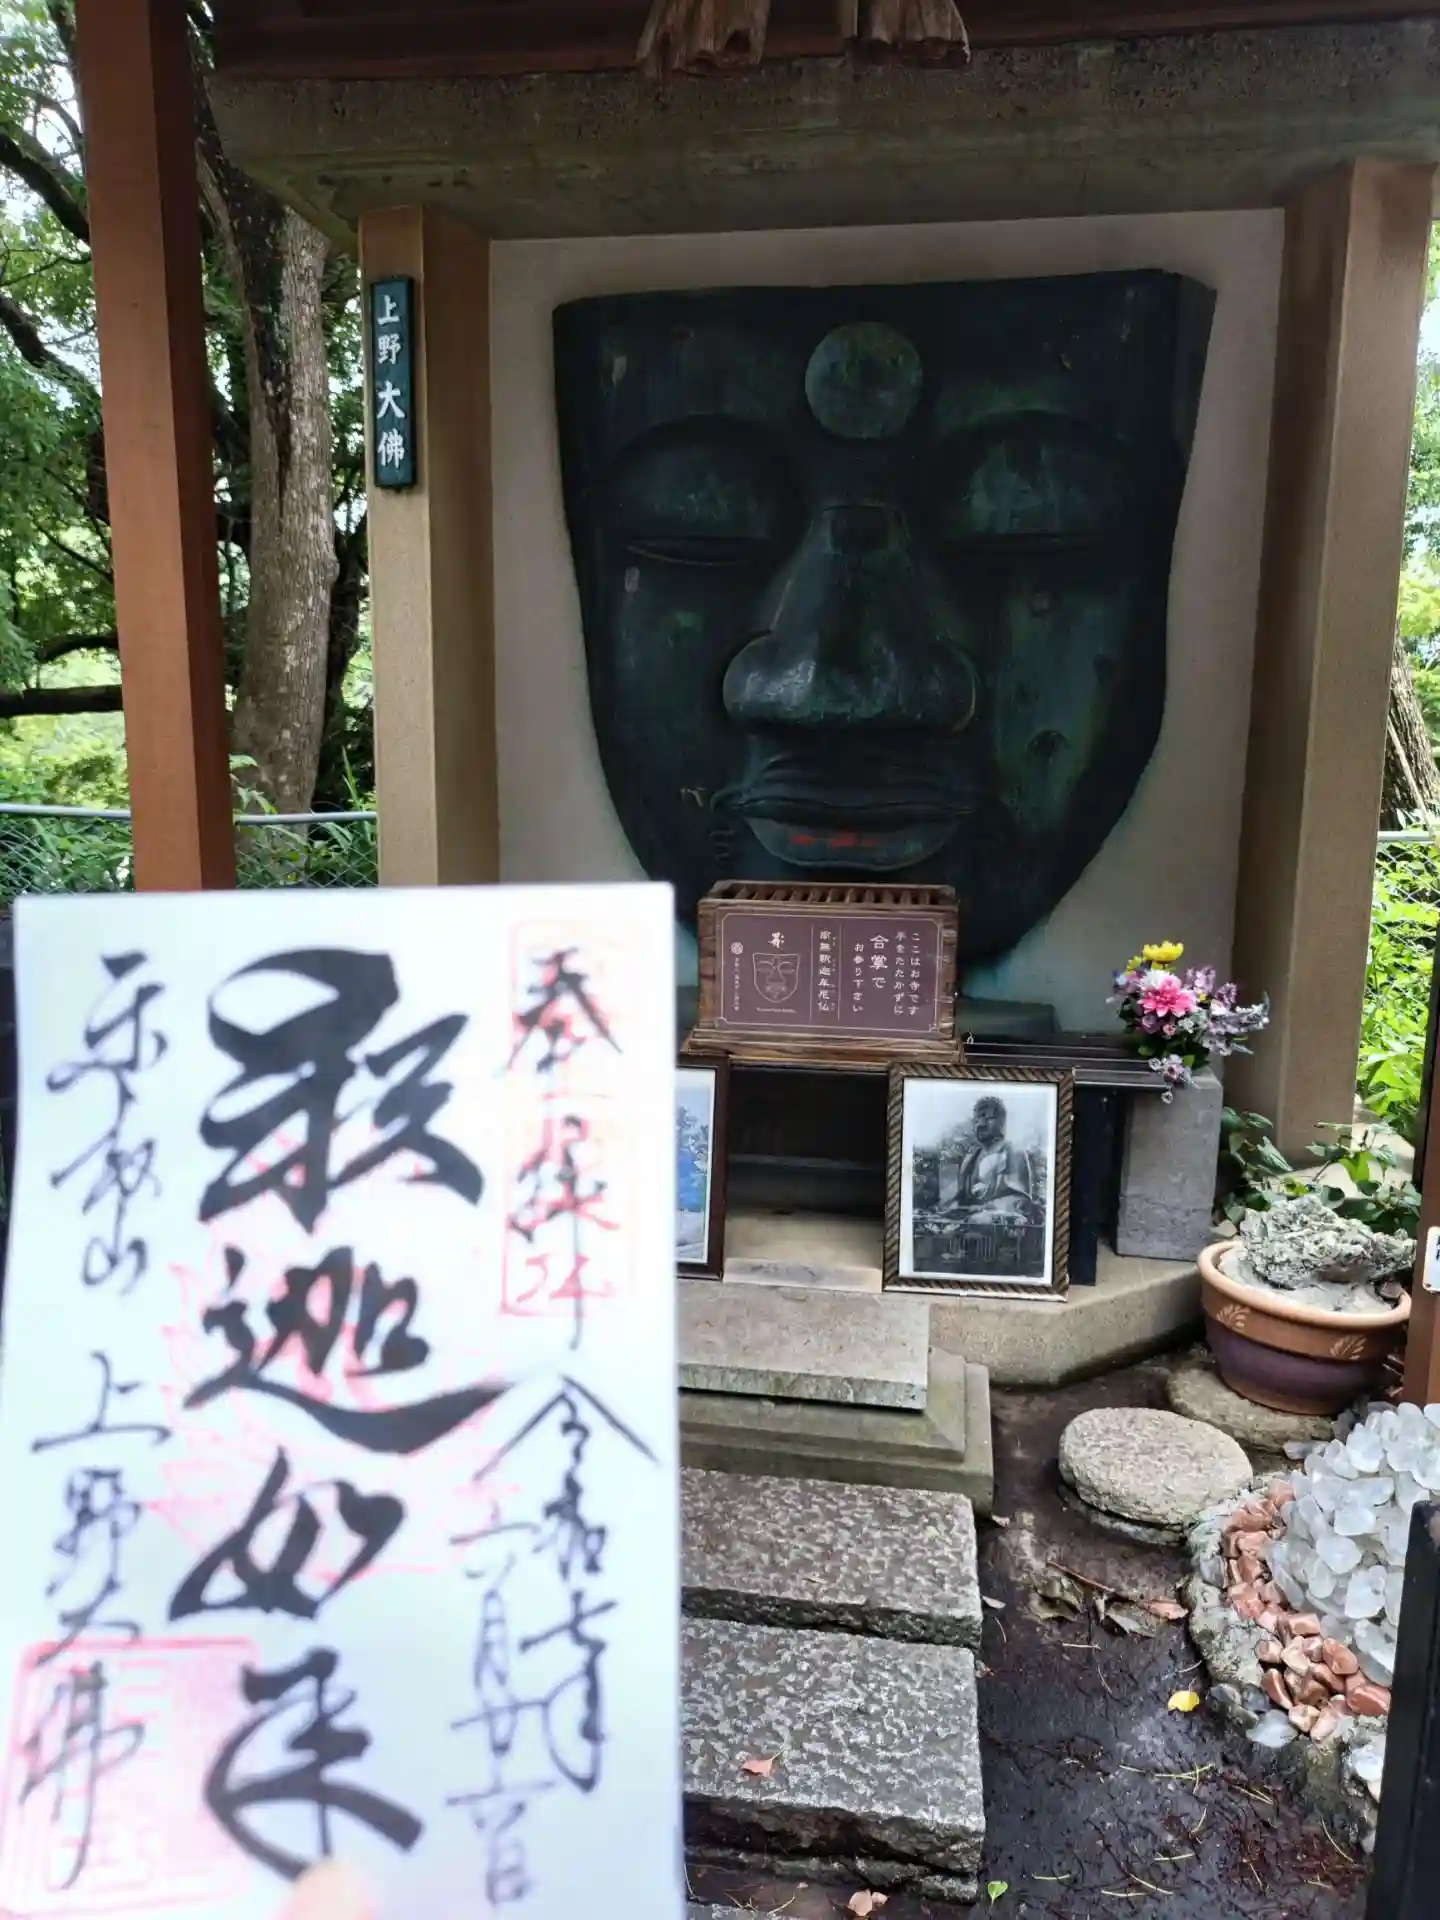 上野大佛
ここはお寺です
手をたたかずに
合掌で
お参り下さい
南無釈迦牟尼仏
奉拝
令和七年
六月廿六日
釈迦如来
東叡山 上野大佛